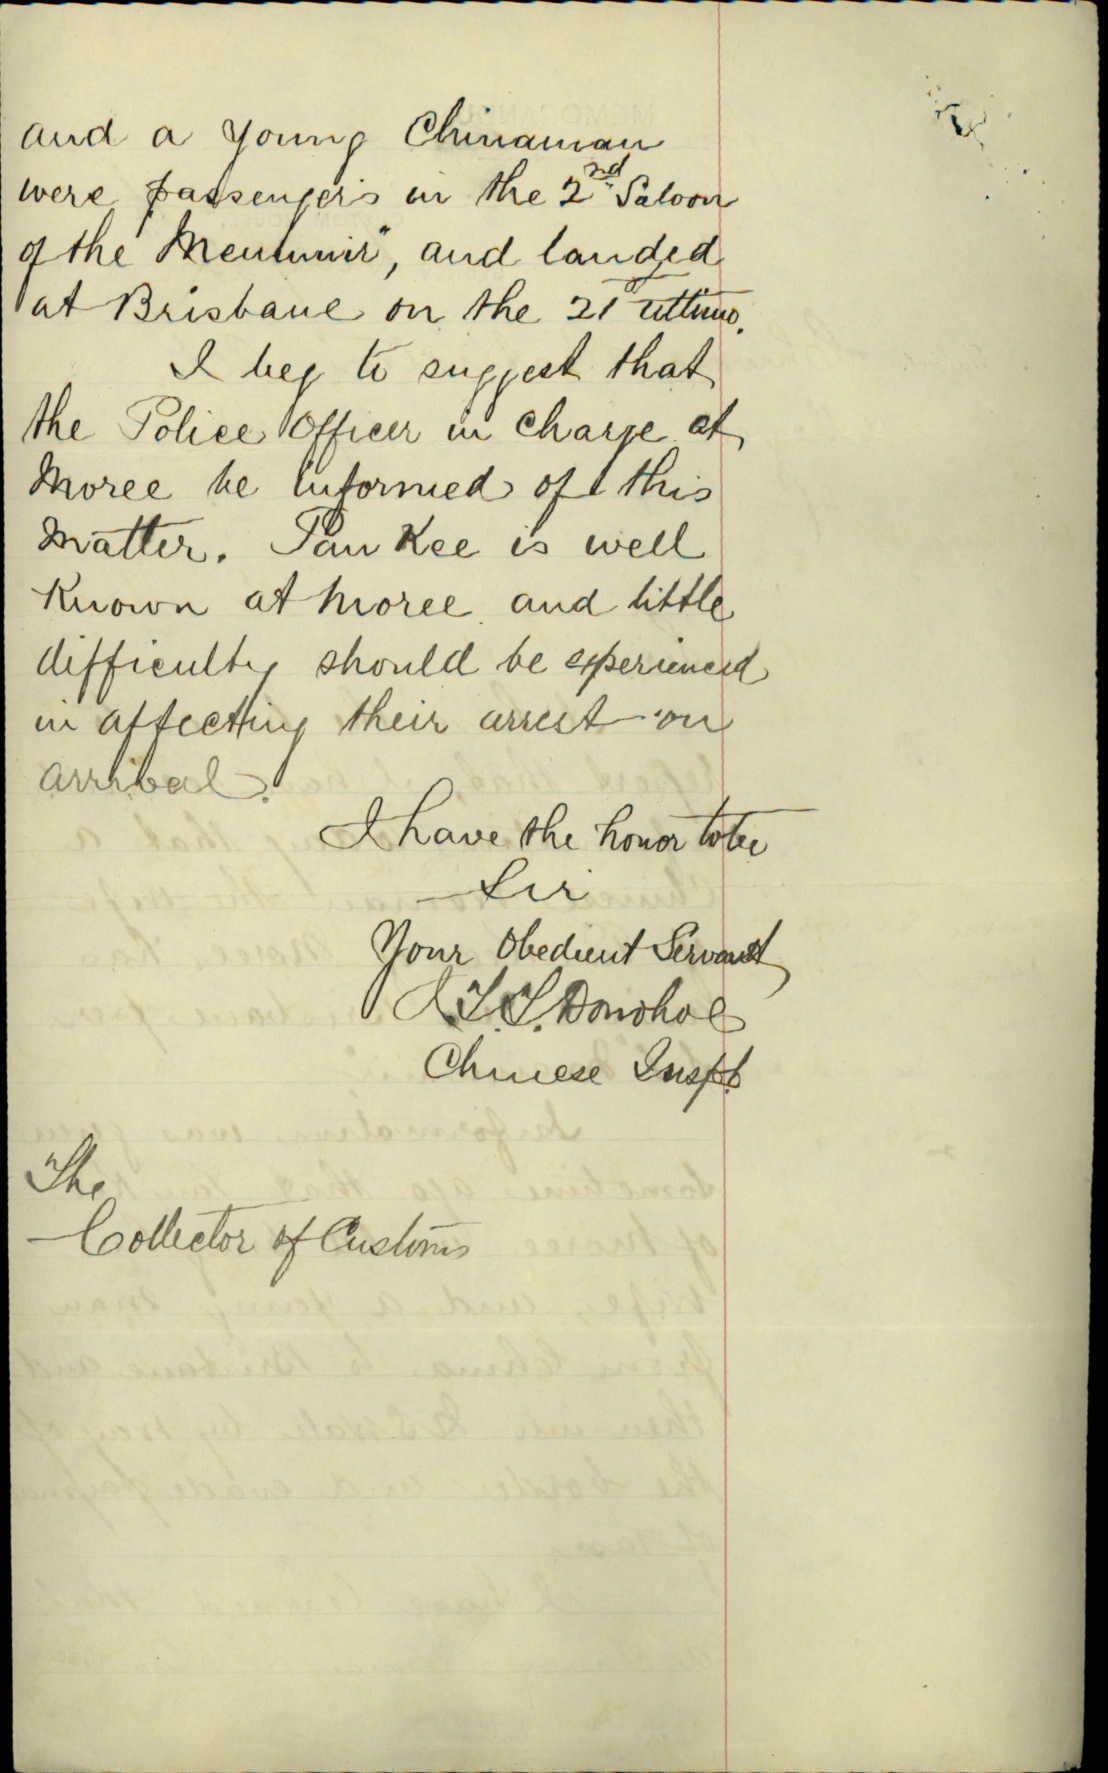 and a young Chinaman
were passengers in the 2nd Saloon
of the "Menmuir", and landed
at Brisbane on the 21st ultimo.
I beg to suggest that
the Police Officer in charge at
Moree be informed of this
matter. Pan Kee is well
known at Moree and little
difficulty should be experienced
in affecting their arrest on
arrival.
I have the honor to be
Sir
Your Obedient Servant
J.T.T. Donohoe
Chinese Inspt.
The
Collector of Customs